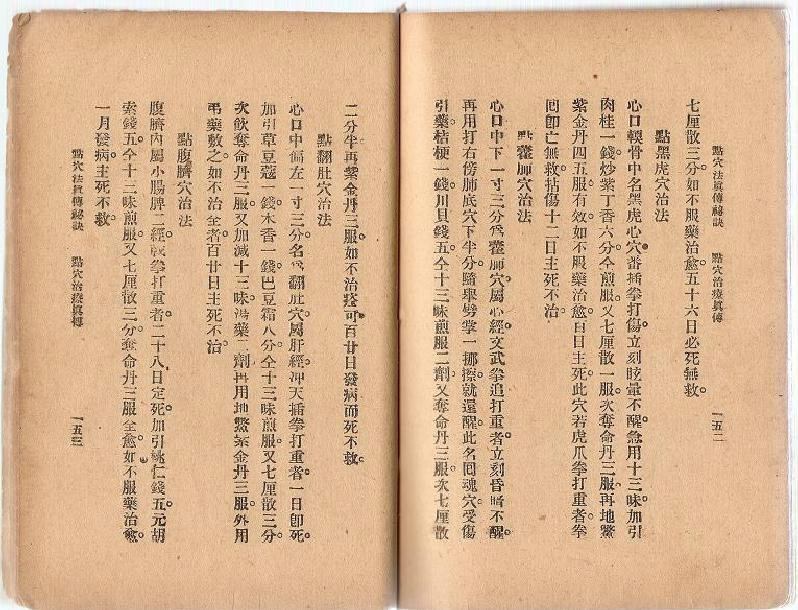 點穴法眞傳秘訣　點穴治療眞傳　一五二
七厘散三分。如不服藥治愈。五十六日必死無救。
點黑虎穴治法
心口輭骨中名黑虎心穴。番插拳打傷。立刻眩暈不醒。急用十三味加引
肉桂一錢炒紫丁香六分。仝煎服。又七厘散一服。次奪命丹三服。再地鱉
紫金丹四五服有效。如不服藥治愈。百日主死。此穴若虎爪拳打重者。拳
回卽亡無救。拈傷十二日主死不治。
點霍肺穴治法
心口中下一寸三分爲霍肺穴。屬心經。文武拳追打重者。立刻昏暗不醒。
再用打右傍肺底穴下半分。隨舉劈掌一挪擦就還醒。此名回魂穴。受傷
引藥桔梗一錢川貝錢五。仝十三味煎服二劑。又奪命丹三服。次七厘散
二分半。再紫金丹三服。如不治痊。可百廿日發病而死不救。
點翻肚穴治法
心口中偏左一寸三分。名爲翻肚穴。屬肝經。冲天插拳打重者。一日卽死。
加引草豆蔻一錢木香一錢巴豆霜八分。仝十三味煎服。又七厘散三分。
次飲奪命丹三服。又加減十三味湯藥二劑。再用地鱉紫金丹三服。外用
弔藥敷之。如不治全者。百廿日主死不治。
點腹臍穴治法
腹臍內屬小腸脾二經。或拳打重者。二十八日定死。加引桃仁錢五元胡
索錢五。仝十三味煎服。又七厘散三分。奪命丹三服全愈。如不服藥治愈。
一月發病。主死不救。
點穴法眞傳秘訣　點穴治療眞傳　一五三